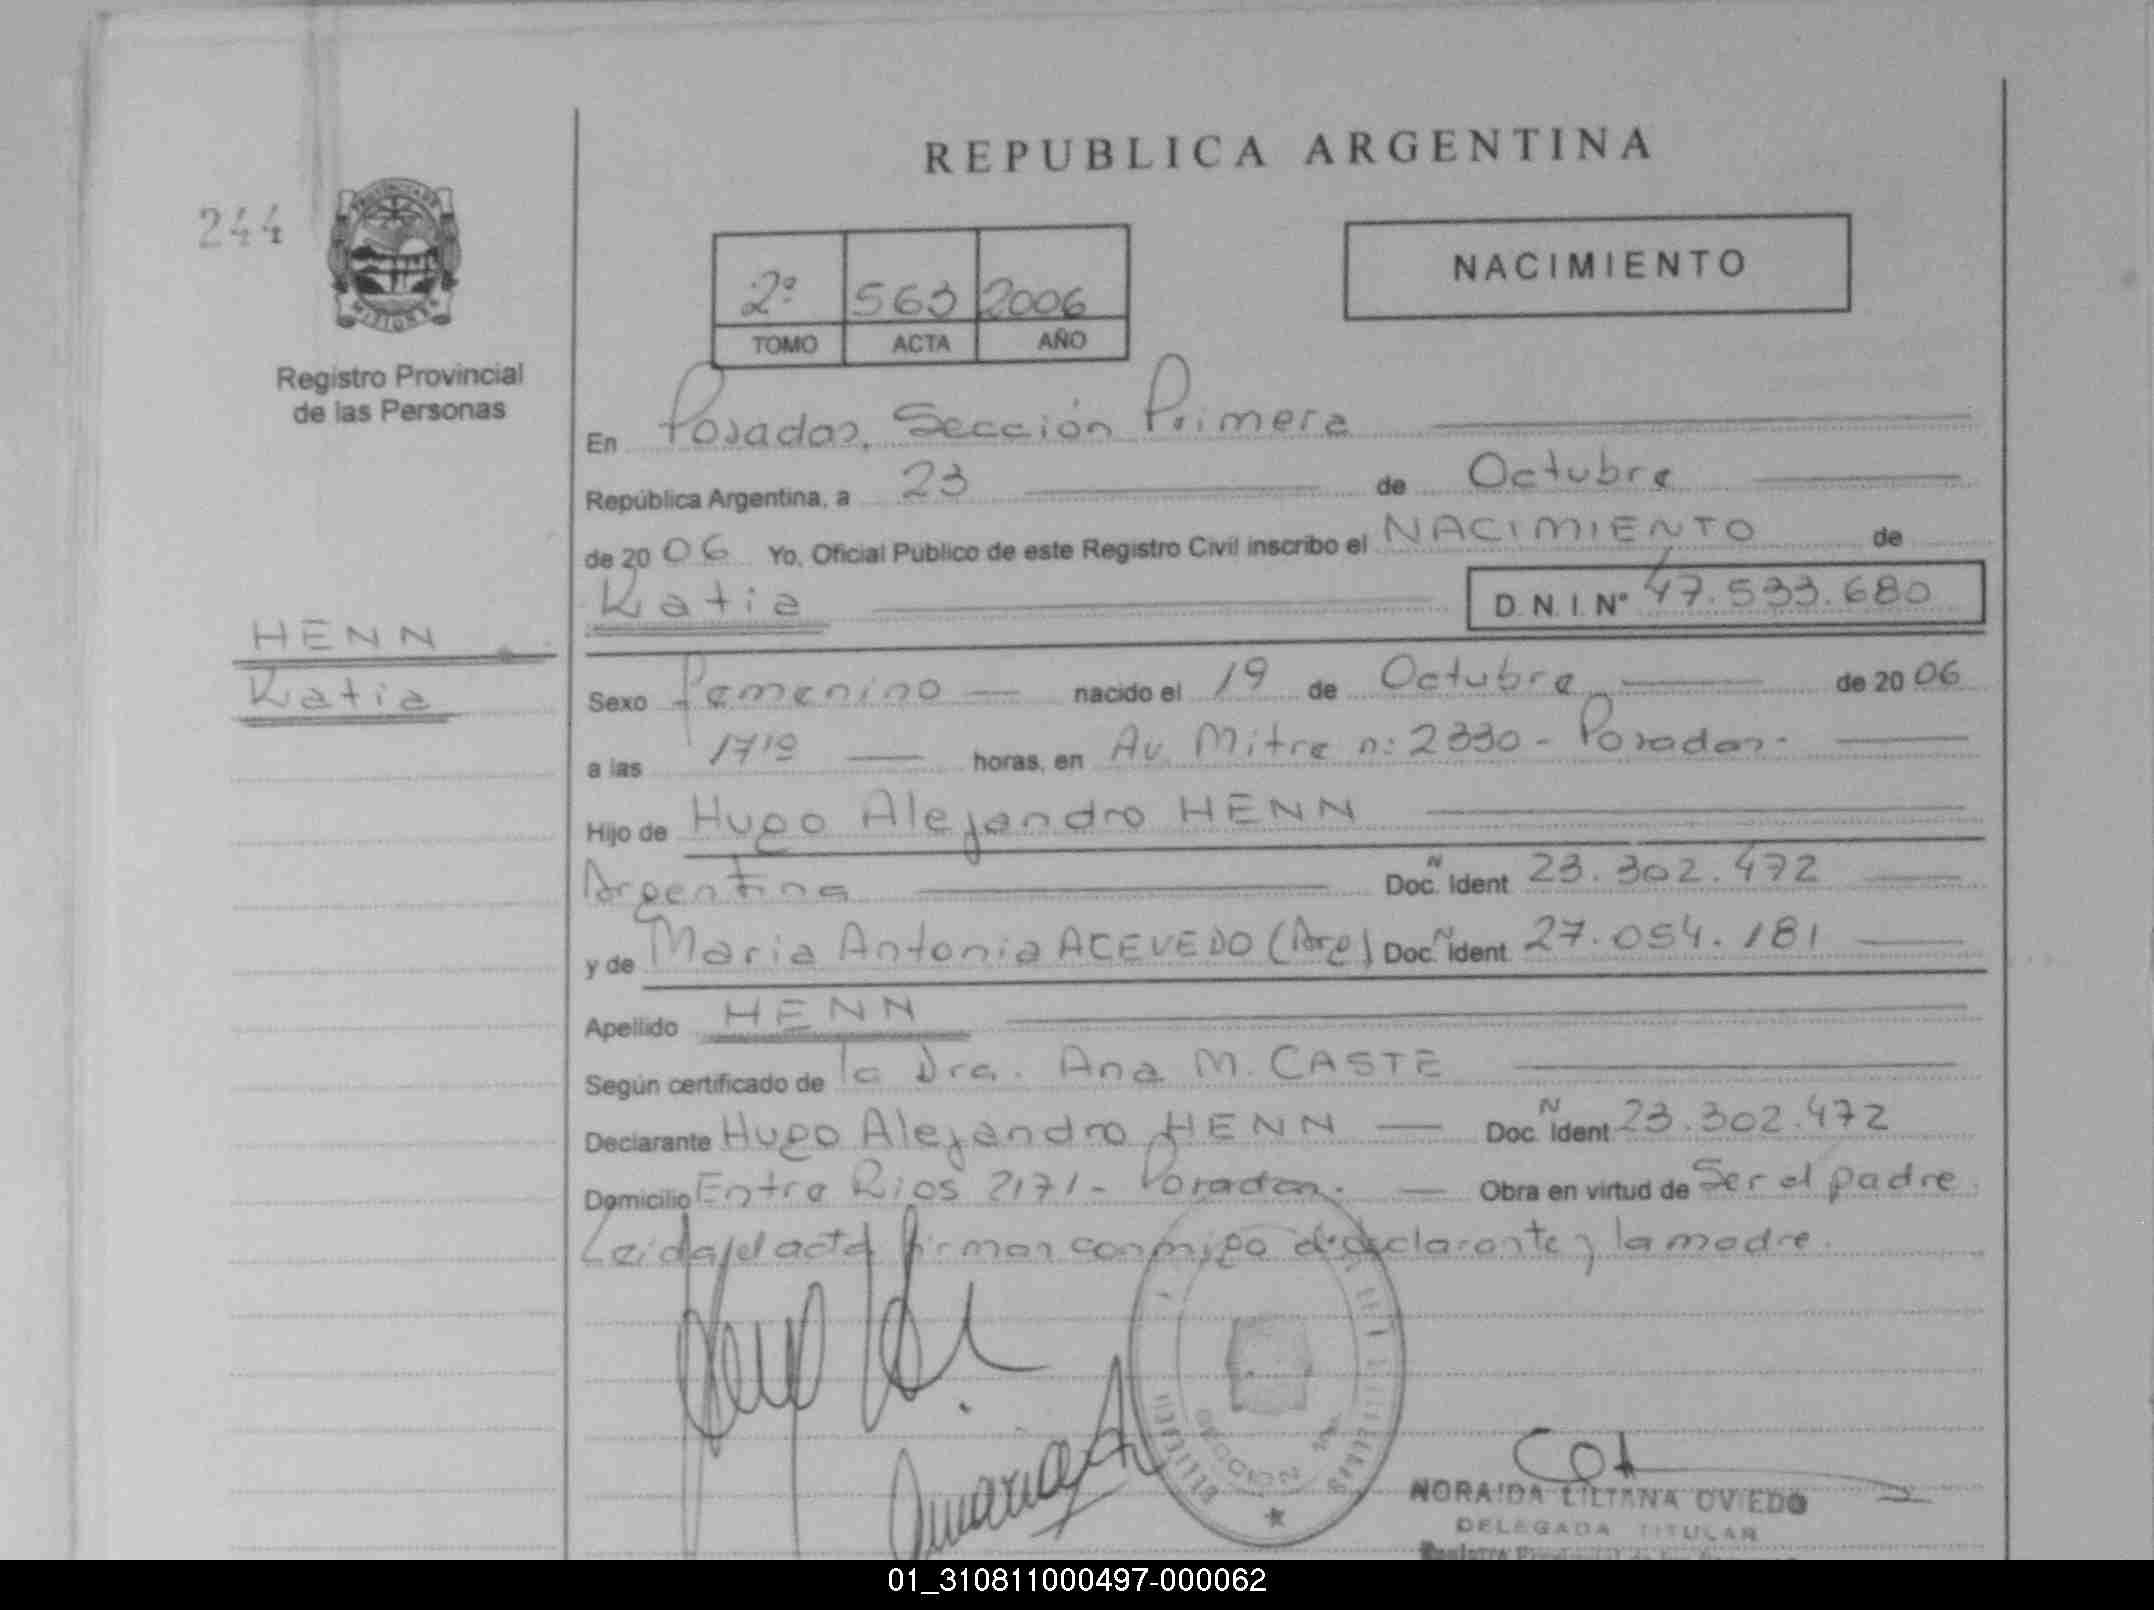 REPUBLICA ARGENTINA
244
NACIMIENTO
2º 563 2006
TOMO ACTA AÑO
Registro Provincial
de las Personas
En Posadas, Sección Primera
República Argentina, a 23 de Octubre
de 2006 Yo, Oficial Publico de este Registro Civil inscribo el NACIMIENTO de
Katia D. N. I. Nº 47.533.680
HENN
Katia
Sexo Femenino nacido el 19 de Octubre de 2006
a las 17¹⁰ horas, en Av. Mitre n: 2330 - Posadas-
Hijo de Hugo Alejandro HENN
Argentina Doc. N Ident 23.302.472
y de Maria Antonia ACEVEDO (Arg) Doc. N Ident 27.054.181
Apellido HENN
Según certificado de la Dra. Ana M. CASTE
Declarante Hugo Alejandro HENN Doc. N Ident 23.302.472
Domicilio Entre Rios 2171 - Posadas. Obra en virtud de Ser el padre.
Leida el acta firman conmigo el declarante y la madre.
NORAIDA LILIANA OVIEDO
DELEGADA TITULAR
01_310811000497-000062